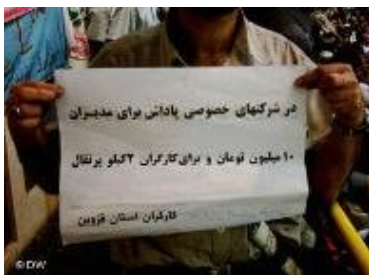 در شرکتهای خصوصی پاداش برای مدیران
۱۰ میلیون تومان و برای کارگران ۲کیلو پرتقال
کارگران استان قزوین
©DW